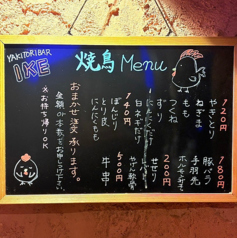 YAKITORI BAR
IKE
焼鳥 Menu
120円
やきとり
ねぎま
もも
つくね
ずり
にんにくだけ
白ネギだけ
140円
ぼんじり
とり皮
にんにくもも
180円
豚バラ
手羽先
200円
せせり
レバー
やげん軟骨
500円
牛串
おまかせ注文 承ります。
金額 or 本数 でお申しつけ下さい。
※お持ち帰りOK